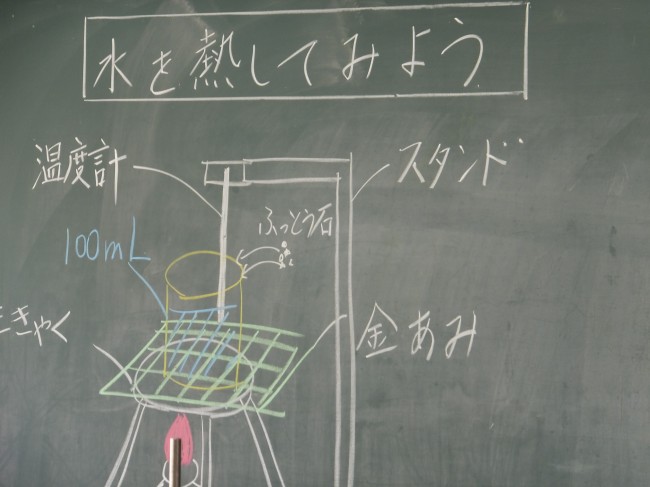 水を熱してみよう
温度計
スタンド
ふっとう石
100mL
きゃく
金あみ